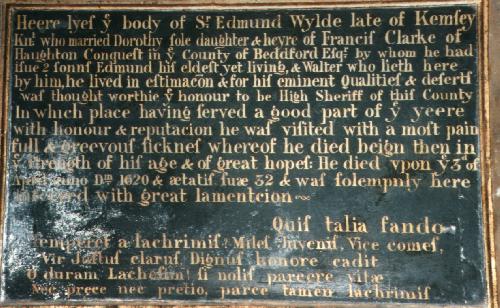 Heere lyeſ ẏ body of Sʳ Edmund Wylde late of Kemſey
Kⁿᵗ who married Dorothy ſole daughter & heyre of Franciſ Clarke of
Haughton Conqueſt in ẏ County of Beddford Eſqʳ by whom he had
iſſue 2 ſonnſ Edmund hiſ eldeſt yet living, & Walter who lieth here
by him, he lived in eſtimacõn & for hiſ eminent Qualitieſ & deſertſ
waſ thought worthie ẏ honour to be High Sheriff of thiſ County
In which place having ſerved a good part of ẏ yeere
with honour & reputacion he waſ viſited with a moſt pain
full & greevouſ ſickneſ whereof he died beign then in
ẏ ſtrength of hiſ age & of great hopeſ: He died vpon ẏ 3ᵈ of
Anno Dⁿⁱ 1620 & ætatiſ ſuæ 32 & waſ ſolempnly here
interred with great lamentcion
Quiſ talia fando
Temperet a lachrimiſ? Mileſ, Juveniſ, Vice comeſ,
Vir Juſtuſ claruſ, Dignuſ honore cadit
O duram Lacheſin! ſi noliſ parcere vitæ
Nec prece nec pretio, parce tamen lachrimiſ